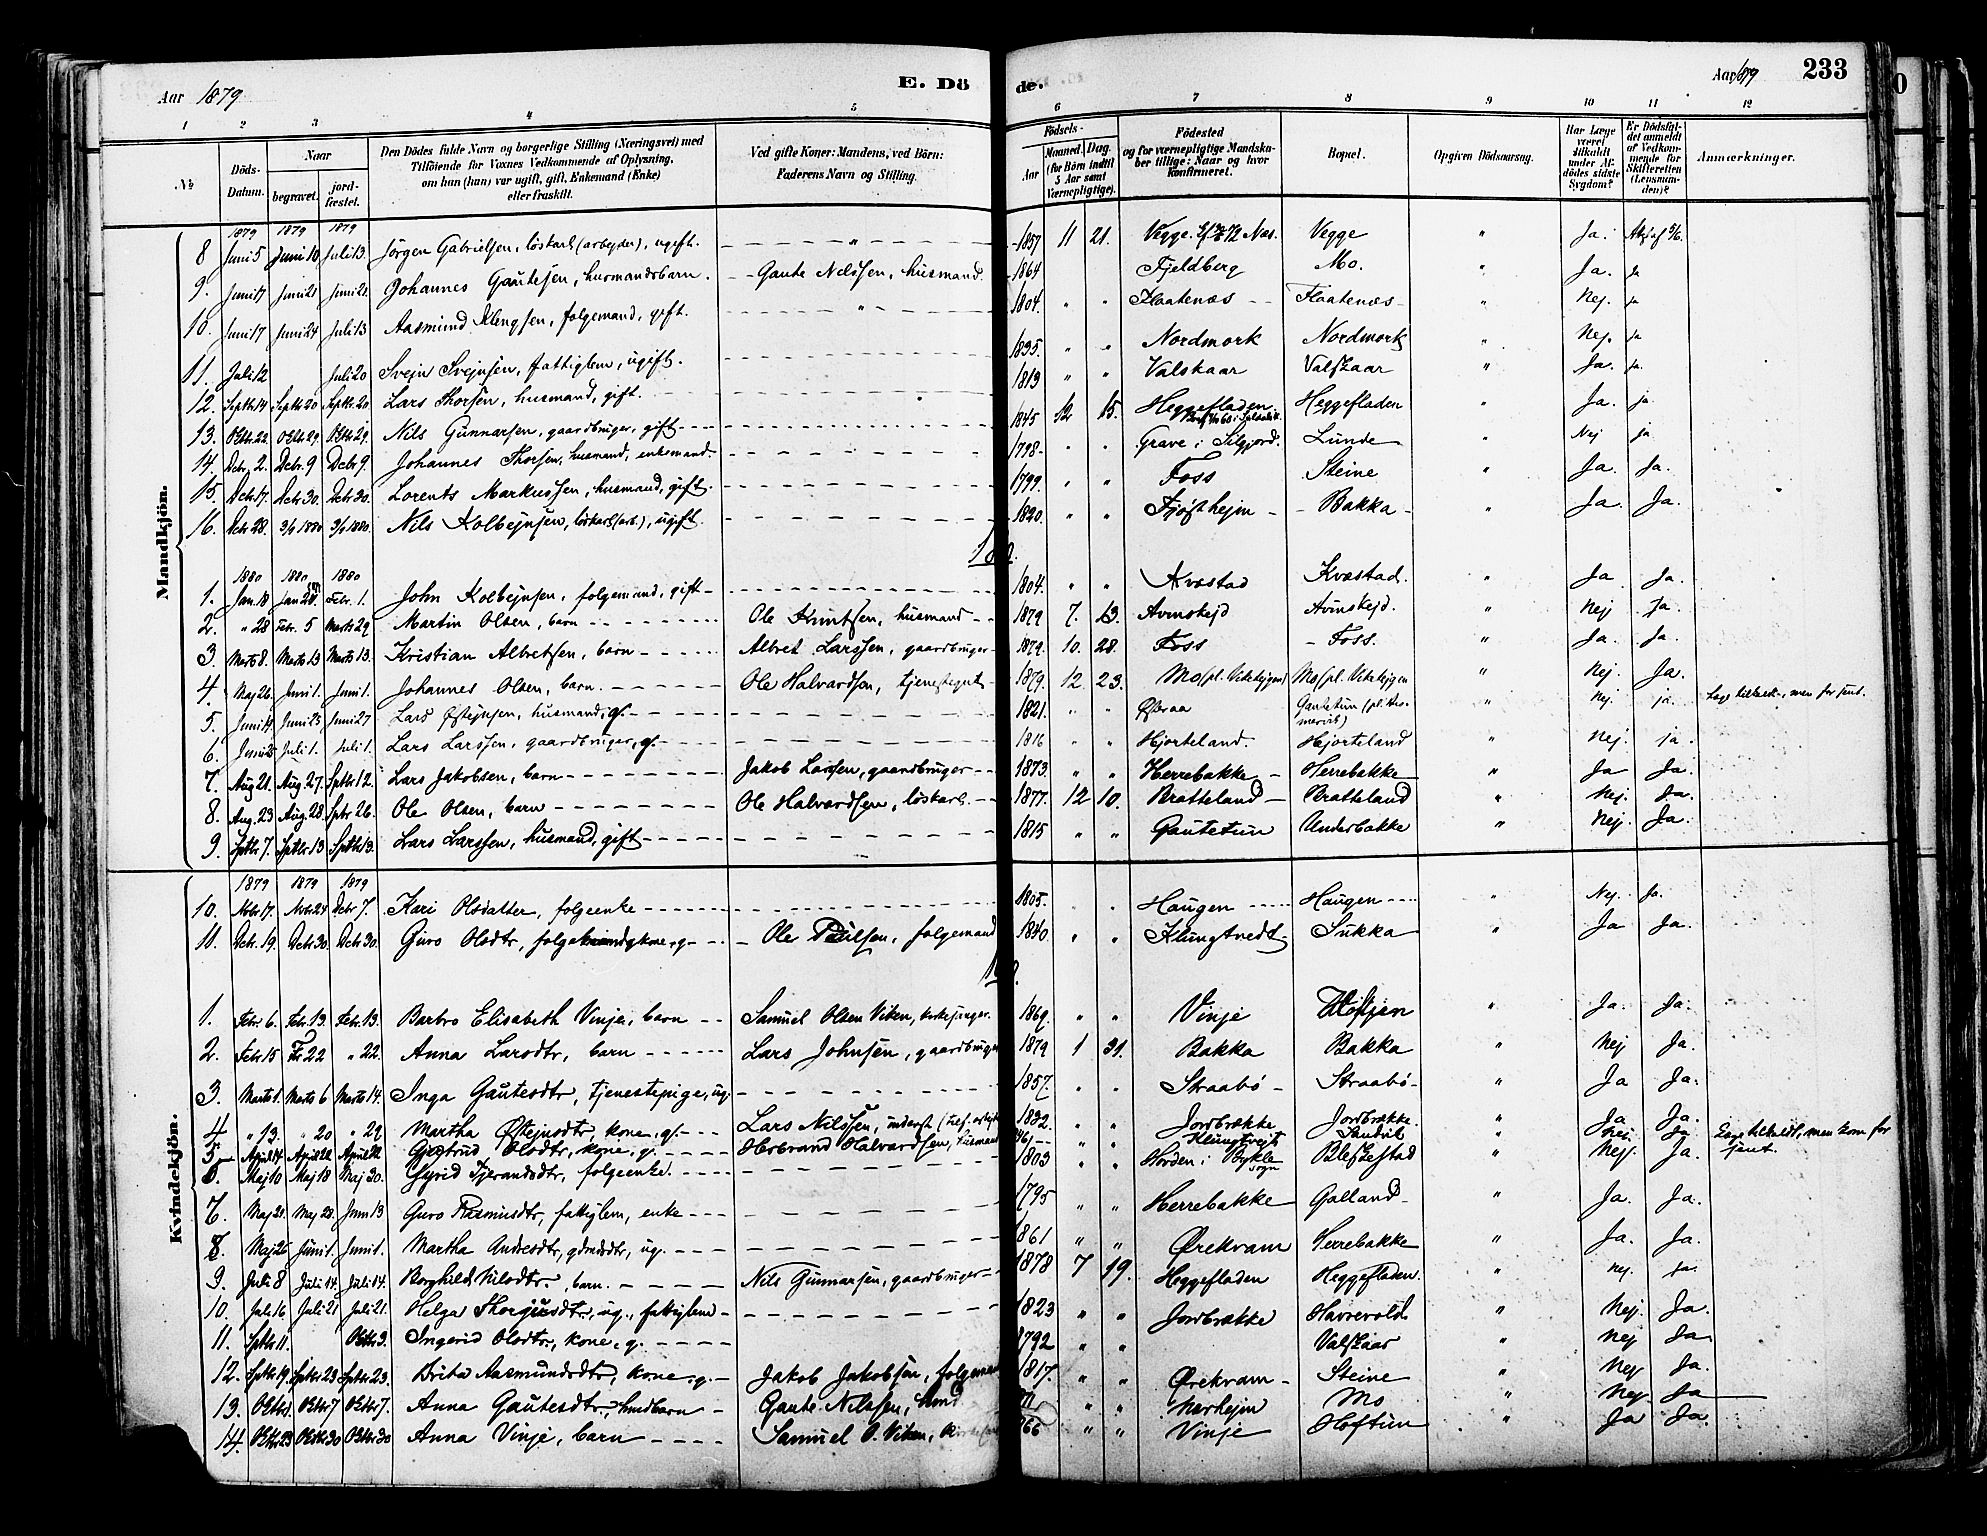 Aar 1879 E. Dö de. Aar 1879 233
1 2 3 4 5 6 7 8 9 10 11 12
№ Döds-Datum. Naar begravet. jord-fæstet. Den Dödes fulde Navn og borgerlige Stilling (Næringsvei) med Tilföiende for Voxnes Vedkommende af Oplysning, om han (hun) var ugift, gift, Enkemand (Enke) eller fraskilt. Ved gifte Koner: Mandens, ved Börn: Faderens Navn og Stilling. Födsels- Aar Maaned. Dag. (for Börn indtil 5 Aar samt Værnepligtige). Födested og for værnepligtige Mandskaber tillige: Naar og hvor konfirmeret. Bopæl. Opgiven Dödsaarsag. Har Læge været tilkaldt under Afdödes sidste Sygdom? Er Dödsfaldet anmeldt af Vedkommende for Skifteretten (Lensmanden)? Anmærkninger.
Mandkjön.
1879 1879 1879
8 Juni 5 Juni 10 Juli 13. Jörgen Gabrielsen, löskarl (arbejder), ugift. " 1857 11 21. Vegge. Vegge " Ja.
9. Juni 17 Juni 21 Juni 21. Johannes Gautesen, husmandsbarn. Gaute Nilssen, husmand. 1864 Fjeldberg Mo. " Ja. Ja
10. Juni 17 Juni 24 Juli 13 Aasmund Klengsen, folgemand, gift. " 1804. " " Flaatenæs Flaatenæs " Nej. ja
11. Juli 12 Juli 20 Svejn Svejnsen, fattiglem, ugift. 1835. " " Nordmork Nordmork " Nej. ja
12. Septbr 14 Septbr 20 Septbr 20 Lars Thorsen, husmand, gift. 1813 " " Valskaar Valskaar " Ja. ja.
13. Oktbr 22 Oktbr 29. Oktbr 29. Nils Gunnarsen, gaardbruger, gift 1845 12 15. Heggefladen Heggefladen " Ja. ja
14. Dcbr. 2. Dcbr 9 Dcbr 9. Johannes Thorsen, husmand, enkemand. 1798 " " Grave i Lunde " Nej ja
15. Dcbr 17. Dcbr 30. Dcbr 30. Lorents Markussen, husmand, gift. 1799. " " Foss Steine " Ja. Ja.
16. Dcbr 28. 3/1 1880 3/1 1880. Nils Kolbejnsen, löskarl (arb.), ugift. 1820. " " Fjøsthejm Bakka " Ja Ja.
1880 1880 1880
1. Jan. 18 Febr. 1. John Kolbejnsen, folgemand, gift 1804. " " Kvæstad Kvæstad. " Ja Ja.
2. " 28 Febr. 5 Marts 29 Martin Olsen, barn Ole Knutsen, husmand 1879 7. 13. Avinskejd Avinskejd. " Nej ja.
3. Marts 8. Marts 13 Marts 13. Kristian Albretsen, barn Albret Larssen, gaardbruger 1879. 10. 28. Foss Foss. " Ja. Ja.
4. Maj 26. Juni 1. Juni 1. Johannes Olsen, barn. Ole Halvardsen, tjenestegut 1879. 12. 23. Mo " Nej. Ja.
5. Juni 19. Juni 25 Juni 27 Lars Østejnsen, husmand, g. 1821. " " Østeraa Gautetun " Nej. ja.
6. Juni 25 Juli 1. Juli 1. Lars Larssen, gaardbruger, g. 1816 " " Hjorteland. Hjorteland " Nej. ja.
7. Aug 21. Aug. 27. Sptbr 12. Lars Jakobsen, barn Jakob Larssen, gaardbruger 1873. " " Herrebakke Herrebakke " Ja Ja.
8. Aug. 23 Aug. 28. Sptbr 26. Ole Olsen, barn Ole Halvardsen, löskarl. 1877. 12 10. Bratteland Bratteland " Nej. Ja.
9. Sptbr 7. Sptbr 13 Sptbr 13. Lars Larssen, husmand, gift 1815 " " Gautetun Underbakke " Nej Ja.
Kvindekjön.
1879 1879 1879
10. Novbr 17. Novbr 24 Dcbr 7. Kari Olsdatter, folgeenke 1805. " " Haugen Haugen " Nej. Ja.
11. Dcbr. 19. Dcbr 30. Dcbr 30. Guro Olsdtr, folgemandskone, g. Ole Paulsen, folgemand 1840. " " Klungtvedt Sukka " Ja Ja.
1. Febr. 6. Febr. 13. Febr. 13. Barbro Elisabeth Vinje, barn Samuel Olsen Viken, kirkesanger. 1869. " " Vinje " Ja. Ja.
2. Febr 15 22 " 22. Anna Larsdtr, barn Lars Johnsen, gaardbruger 1879 1 31. Bakka Bakka " Nej Ja.
3. Marts 1. Marts 6 Marts 14. Inga Gautesdtr, tjenestepige, ug. 1857. " " Straabö Straabö " Ja Ja.
4 " 13. " 20 " 29 Martha Østejnsdtr, kone, g. Lars Nilssen, inderst 1832. " " Jordbrække Jordbrække. " Ja Ja.
5. April 14 April 22 April 22 Gjertrud Olsdtr, kone, g. Herbrand Halvardsen, husmand Klungtvejt Sandvik "
6. Maj 10 Maj 18 Maj 30. Gyrid Tjerandsdtr, folgeenke. 1803 " " Hovden i Bykle sogn Bleskestad " Nej. Ja.
7. Maj 21. Maj 29. Juni 13 Guro Rasmusdtr, fattiglem, enke 1795 " " Herrebakke Galland " Ja. Ja.
8. Maj 26 Juni 1. Juni 1. Martha Andresdtr, gdmdsdtr, ug. 1861 " " Ørekvam Herrebakke " Ja. Ja.
9. Juli 8 Juli 14. Juli 14. Borghild Nilsdtr, barn. Nils Gunnarsen, gaardbruger 1878 7 19. Heggefladen Heggefladen. " Nej. ja.
10. Juli 16 Juli 21 Juli 21. Helga Thorgjusdtr, ug., fattiglem 1823 " " Jordbrække Havrevold " Nej. Ja.
11. Sptbr 11. Oktbr 3. Ingerid Olsdtr, kone, g. 1792 " " Valskaar " Nej Ja
12. Sptbr 19. Sptbr 23 Sptbr 23. Brita Aasmundsdtr, kone, g. Jakob Jakobsen, 1817. " " Ørekvam Steine " Nej Ja.
13. Oktbr 7 Oktbr 7. Anna Gautesdtr, husmdbarn Gaute Nilssen, " " Mo " Nej. Ja
14. Oktbr 23 Oktbr 30 Oktbr 30 Anna Vinje, barn Samuel O. Viken, " " Vinje Hoftun " Ja Ja.